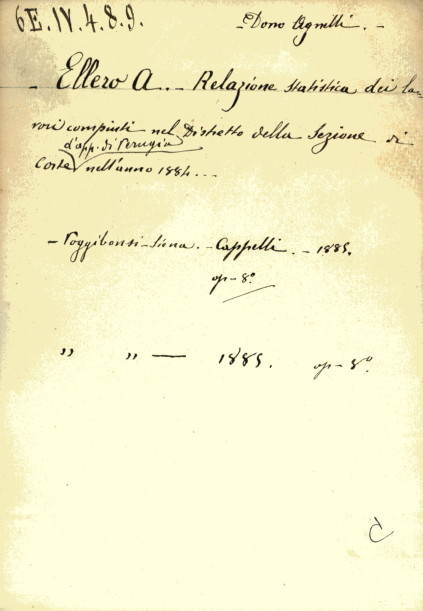 6E.IV.4.8.9.
Dono Agnelli. -
- Ellero A. - Relazione statistica dei la-
vori compiuti nel Distretto della Sezione di
d'app. di Perugia
Corte nell'anno 1884. - -
- Poggibonsi-Siena. - Cappelli. - 1885.
op - 8º
" " — 1885. op - 8º.
C